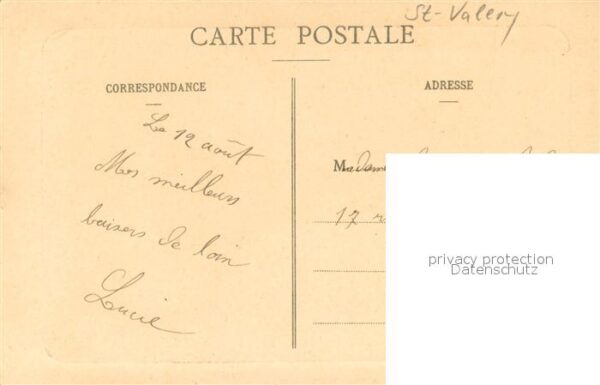 St-Valery
CARTE POSTALE
CORRESPONDANCE
ADRESSE
Le 12 août
Mes meilleurs
baisers de loin
Lucie
Madame
17 r
privacy protection
Datenschutz